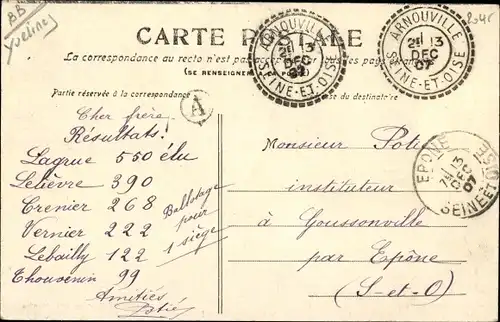 BB
Yvelines
CARTE POSTALE
La correspondance au recto n'est pas
(SE RENSEIGNER
Partie réservée à la correspondance
du destinataire
ARNOUVILLE
13
DEC
07
SEINE-ET-OISE
ARNOUVILLE
13
DEC
07
SEINE-ET-OISE
A
EPONE
13
DEC
07
SEINE ET OISE
Cher frère,
Résultats!
Lagrue 550 élu
Lelièvre 390
Crenier 268
Vernier 222
Lebailly 122
Thouvenin 99
Ballotage
pour
1 siège
Amitiés
Monsieur
instituteur
à Goussonville
par Epône
(S-et-O)